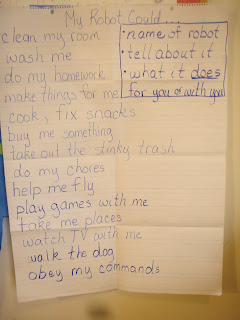 My Robot Could...
clean my room
wash me
do my homework
make things for me
cook, fix snacks
buy me something
take out the stinky trash
do my chores
help me fly
play games with me
take me places
watch TV with me
walk the dog
obey my commands
• name of robot
• tell about it
• what it does
for you or with you